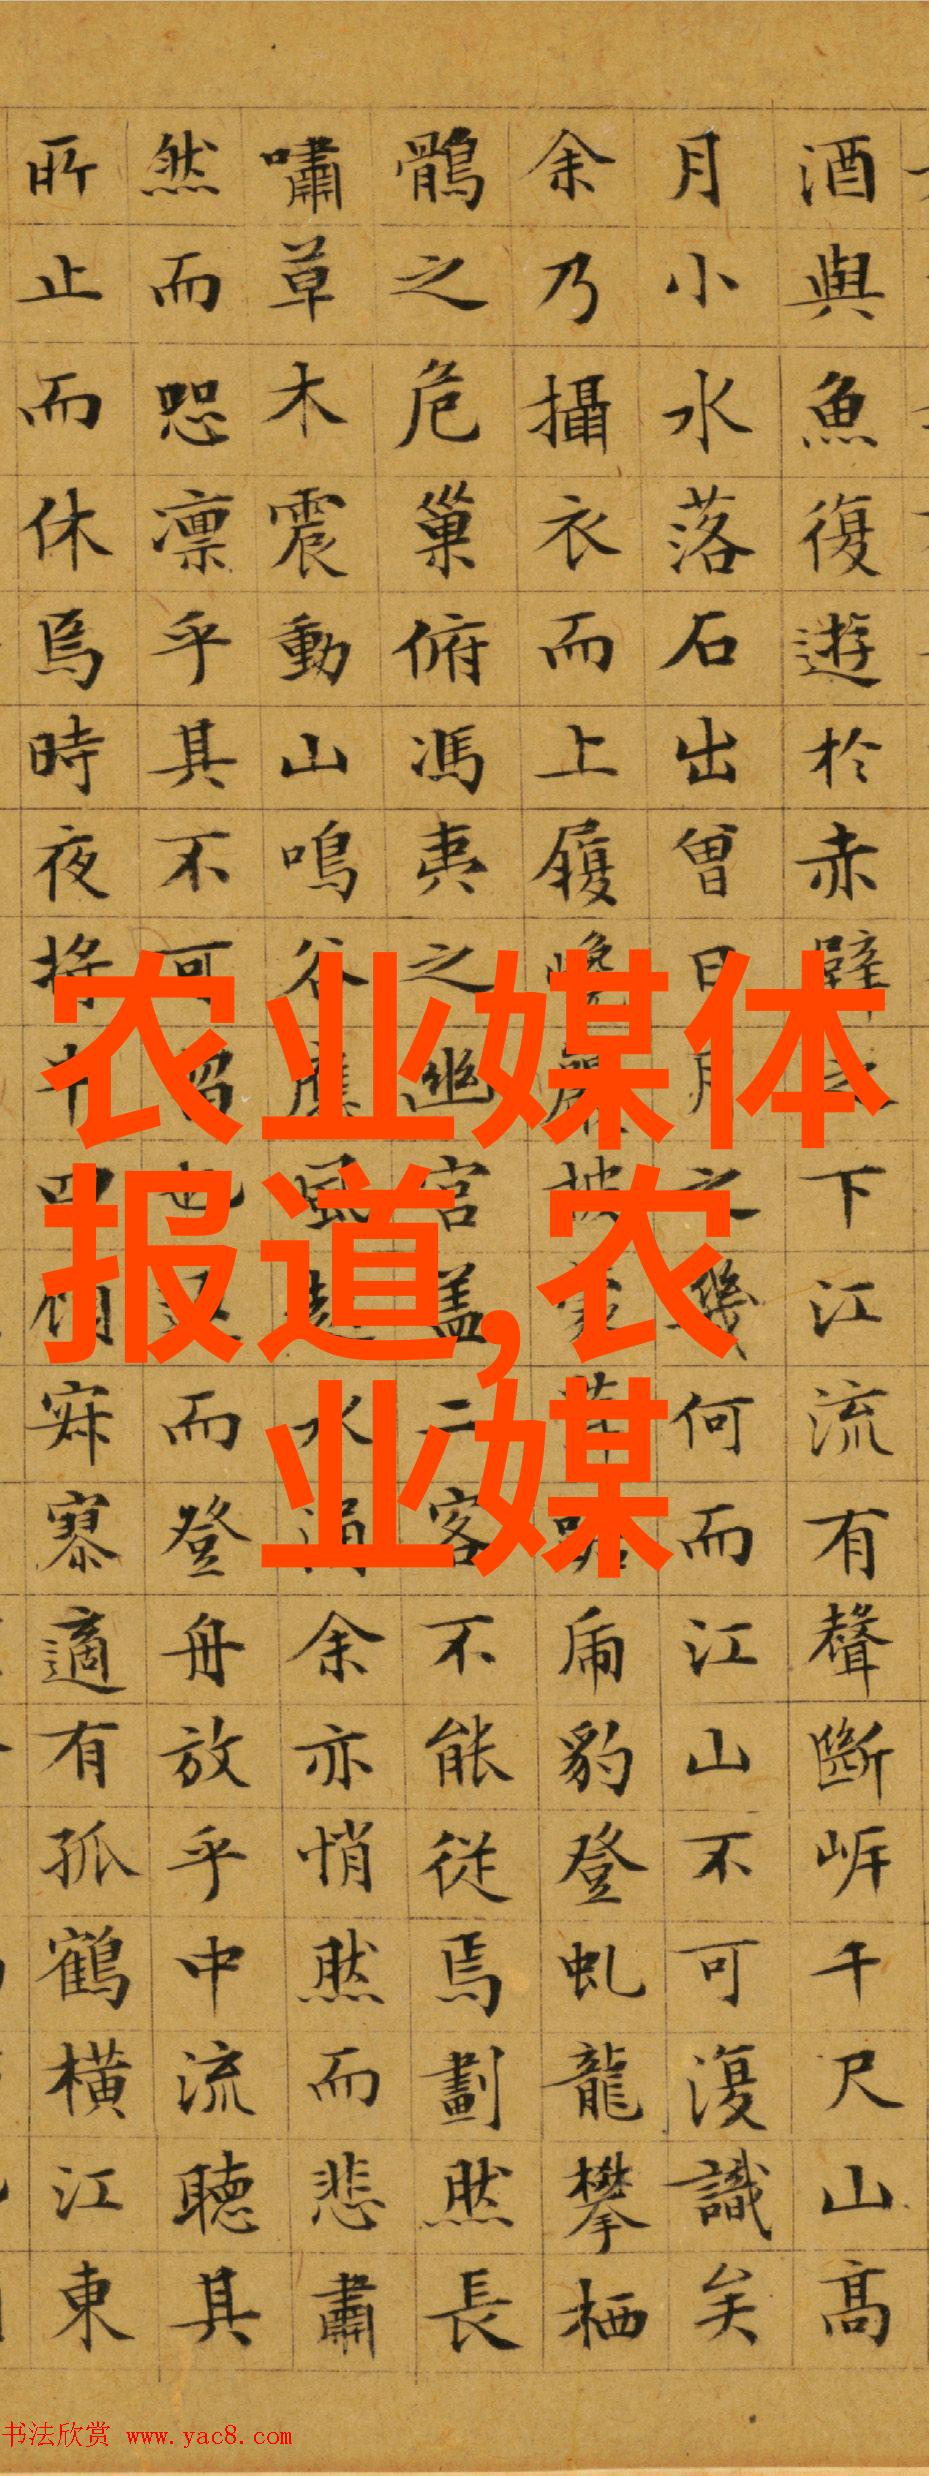 酒與魚復遊於赤壁之下江流有聲斷岸千尺山高
月小水落石出曾日月之幾何而江山不可復識矣
余乃攝衣而上履巉巖披蒙茸踞虎豹登虬龍攀栖
鶻之危巢俯馮夷之幽宮盖二客不能從焉劃然長
嘯草木震動山鳴谷應風起水涌余亦悄然而悲肅
然而恐凛乎其不可留也反而登舟放乎中流聽其
所止而休焉時夜將半四顧寂寥適有孤鶴橫江東
农业媒体
报道,农
业媒
书法欣赏 www.yac8.com